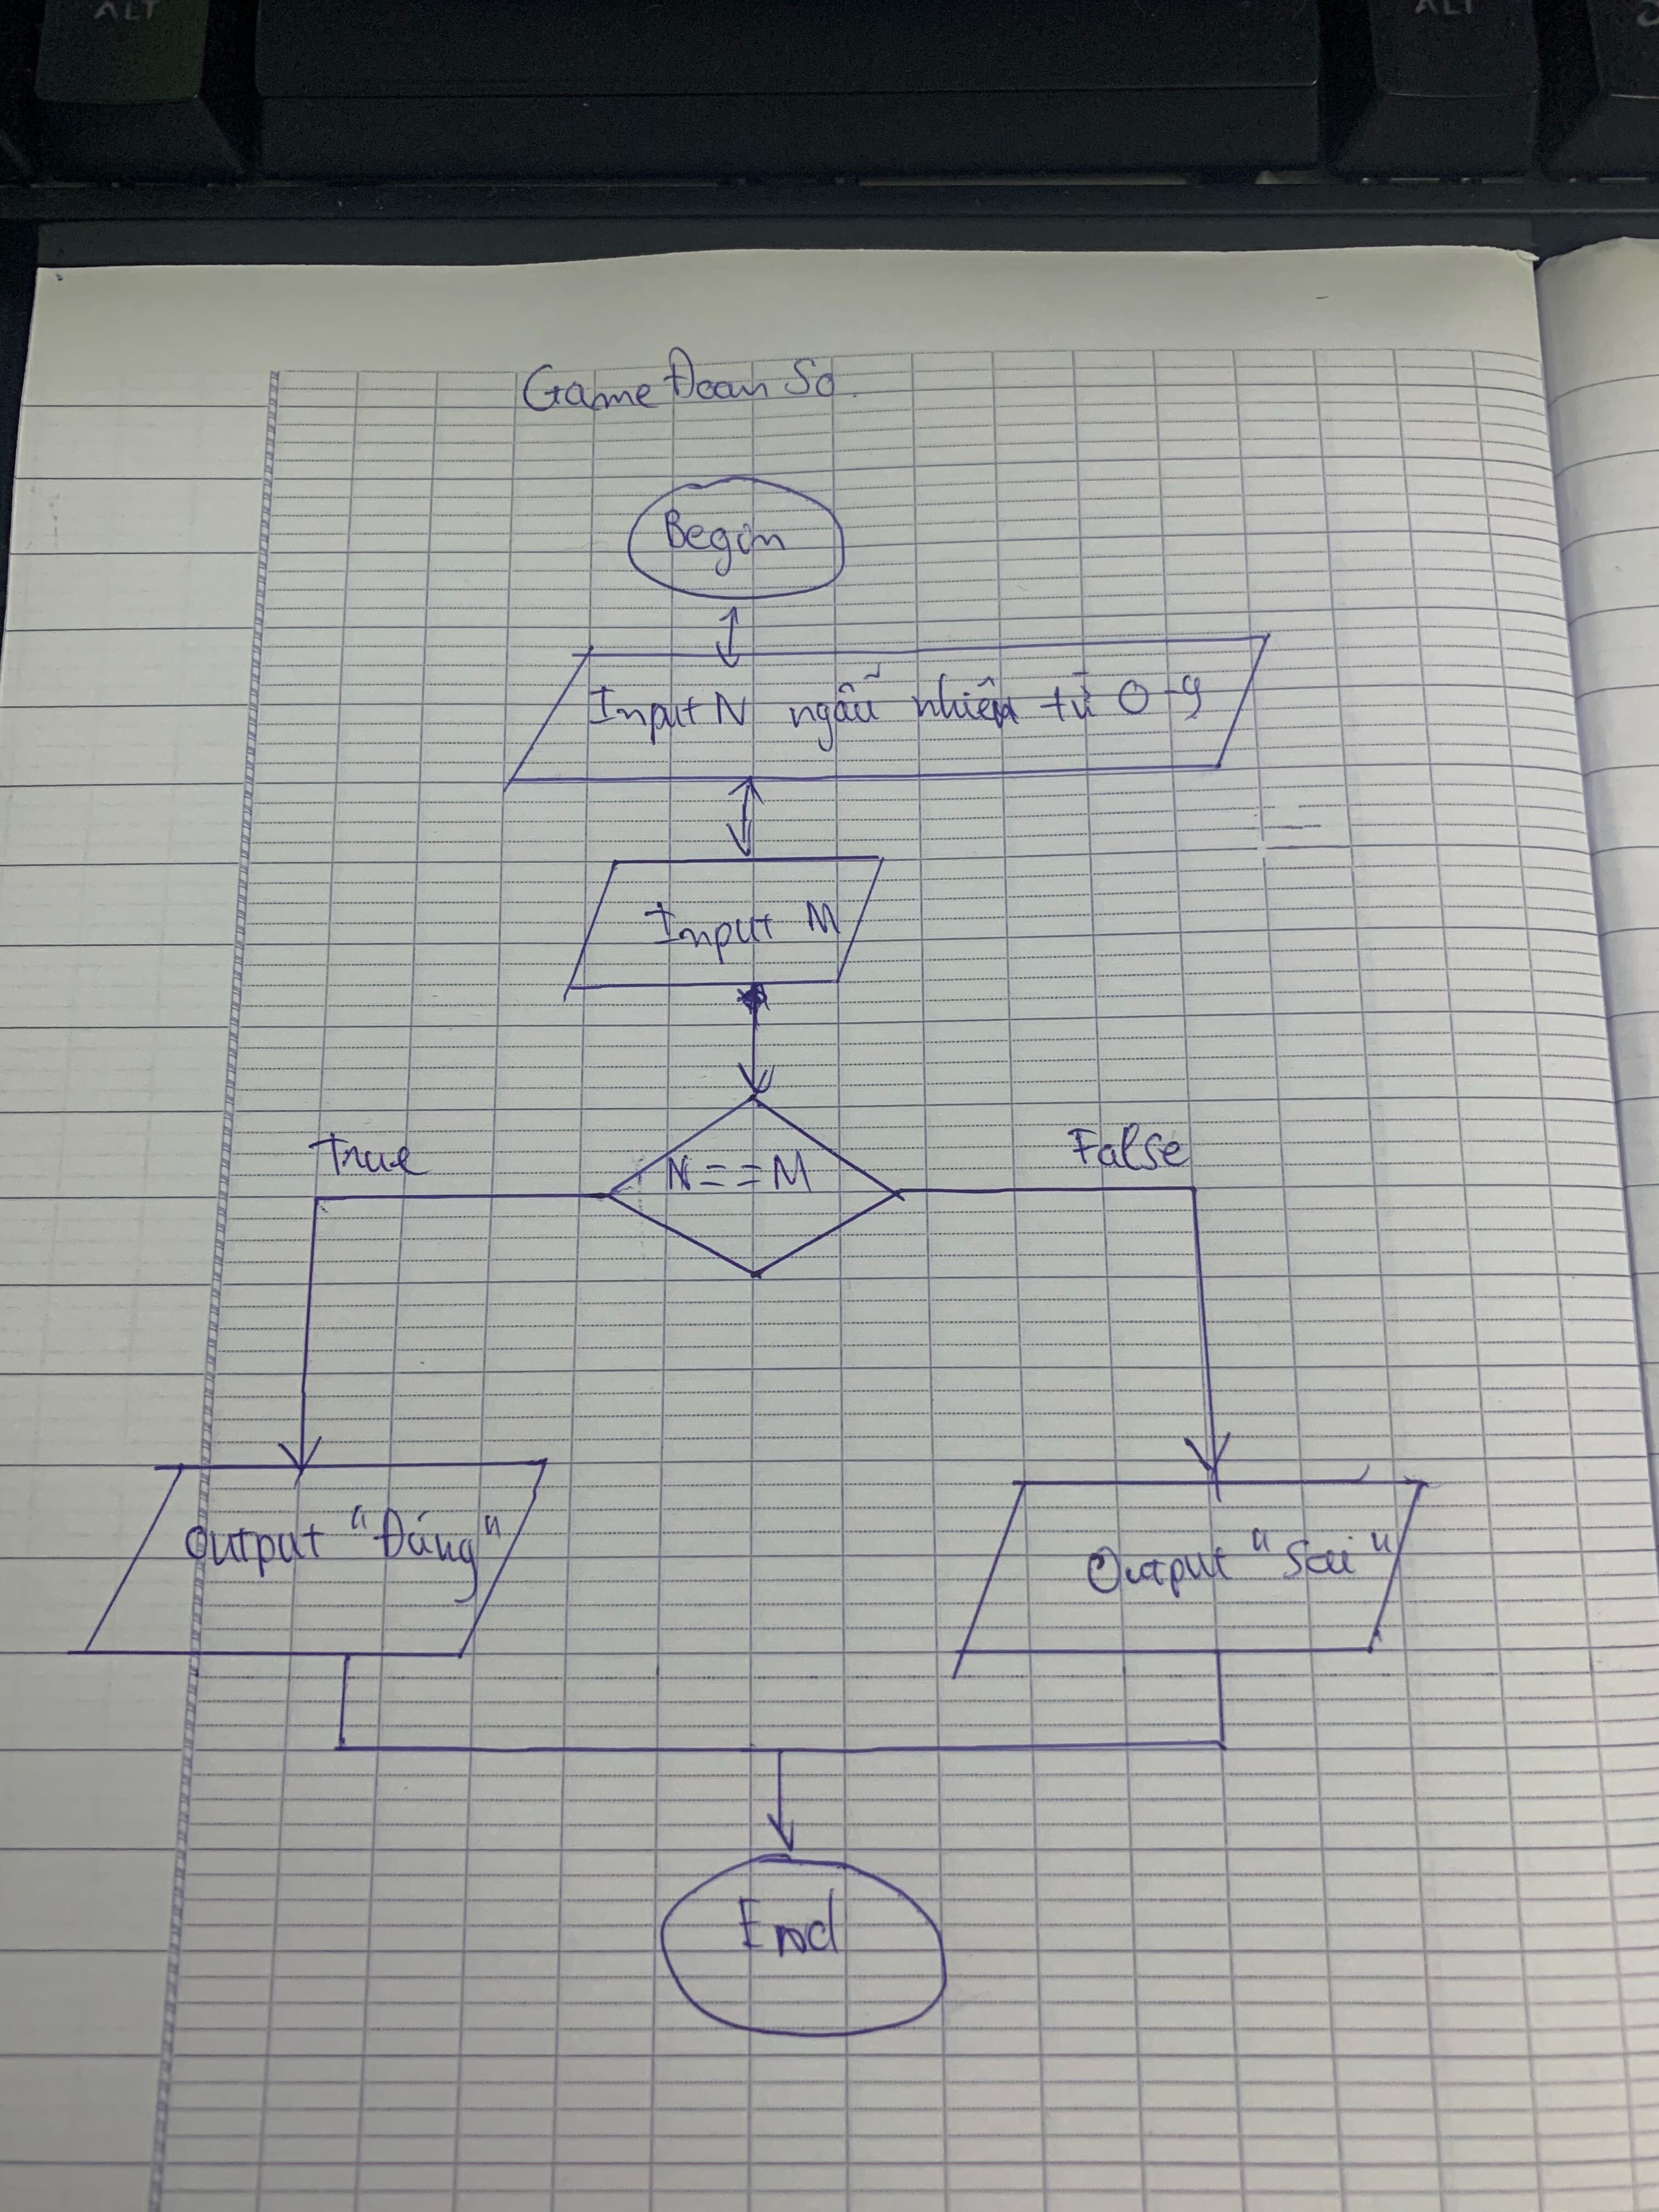 ALT
ALT
Game Đoan Sô
Begin
Input N ngẫu nhiên từ 0-9
Input M
True
N==M
False
Output "Đúng"
Output "Sai"
End